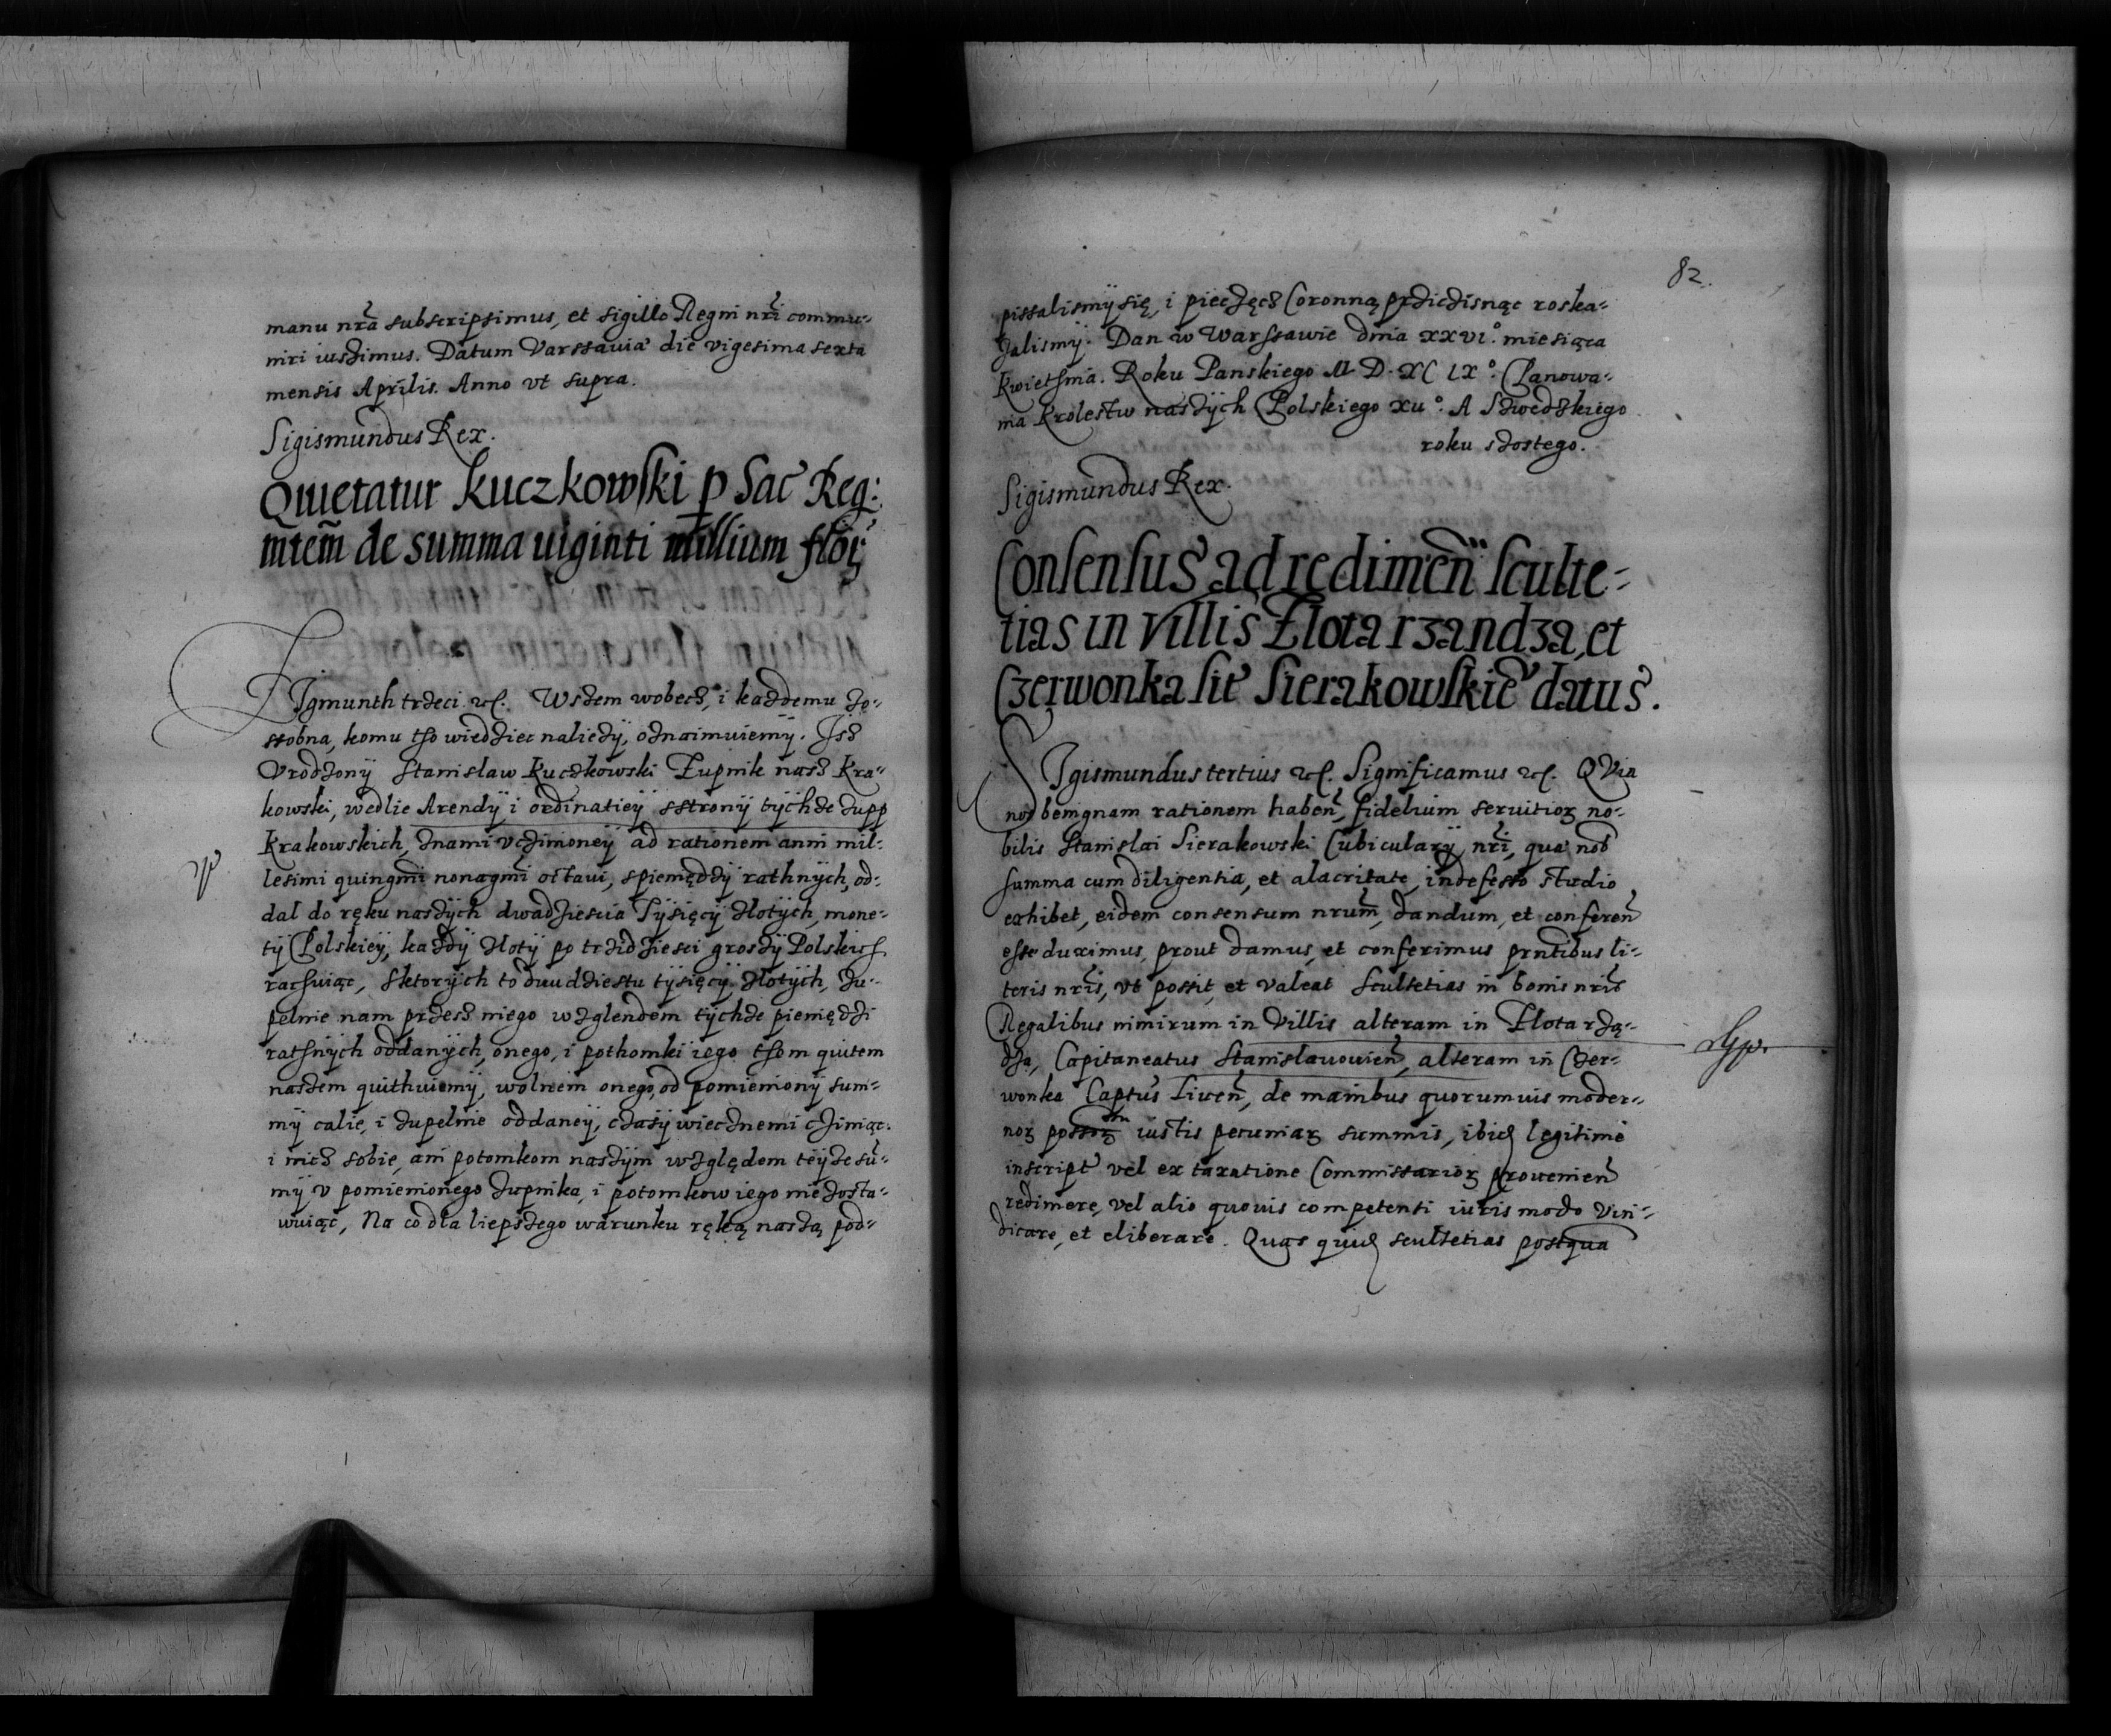 manu nrã subscripsimus, et sigillo Regni nri commu-
niri iussimus. Datum Varssauiæ die vigesima sexta
mensis Aprilis. Anno vt supra.
Sigismundus Rex.
Quietatur Kuczkowski p Sac Reg:
mtem de summa uiginti millium flor
Zigmunth trzeci etc. Wszem wobecz, i każdemu zo-
ssobna, komu tho wiedziec nalieży, oznaimuiemy. Isz
Vrodzony Stanislaw Kuczkowski Żupnik nasz Kra-
kowski, wedlie Arendy i ordinatiey sstrony tychże żupp
Krakowskich, znami vczimoney ad rationem anni mil-
lesimi quingmi nonagmi octaui, spieniędzy rathnych, od-
dal do ręku naszych dwadziescia Tysięcy złotych, mone-
ty Polskiey, każdy złoty po trzidziesci groszy Polskich
rachuiąc, Sktorych to dwudziestu tysięcy złotych, zu-
pelnie nam przesz niego wzglendem tychże pieniędzi
rathnych oddanych, onego, i pothomki iego thym quitem
naszem quithuiemy, wolniem onego, od pomieniony sum-
my calie, i zupelnie oddaney, czasy wiecznemi cziniąc.
i nicz sobie, ani potomkom naszym względem teyże su-
my v pomienionego żupnika, i potomkow iego nie zosta-
wuiąc, Na co dla liepszego warunku ręką naszą pod-
82.
pissalismy się, i pieczęcz Coronną przicisnąc roska-
zalismy. Dan w Warssawie dnia xxvi.° miesiąca
Kwiethnia. Roku Panskiego M. D. XC IX°. Panowa-
nia Krolestw naszych Polskiego xii°. A Szwedzkiego
roku szostego.
Sigismundus Rex.
Consensus ad redimen sculte-
tias in villis Złota rzandza, et
Czerwonka sit Sierakowskie datus.
SIgismundus tertius etc. Significamus etc. QVia
nos benignam rationem haben, fidelium seruitior no-
bilis Stanislai Sierakowski Cubicularÿ nri, quæ nob
summa cum diligentia, et alacritate, indefesso studio
exhibet, eidem consensum nrum, dandum, et conferen
esse duximus, prout damus, et conferimus prntibus li-
teris nris, vt possit, et valeat Scultetias in bonis nris
Regalibus nimirum in Villis alteram in Złota rzą-
dza, Capitaneatus Stanislauouien, alteram in Czer-
wonka Captus Liuen, de manibus quorumuis moder-
nor possor iustis pecuniar summis, ibid legitime
inscript vel ex taxatione Commissarior prouenien
redimere, vel alio quouis competenti iuris modo vin-
dicare, et eliberare. Quas quid scultetias postqua